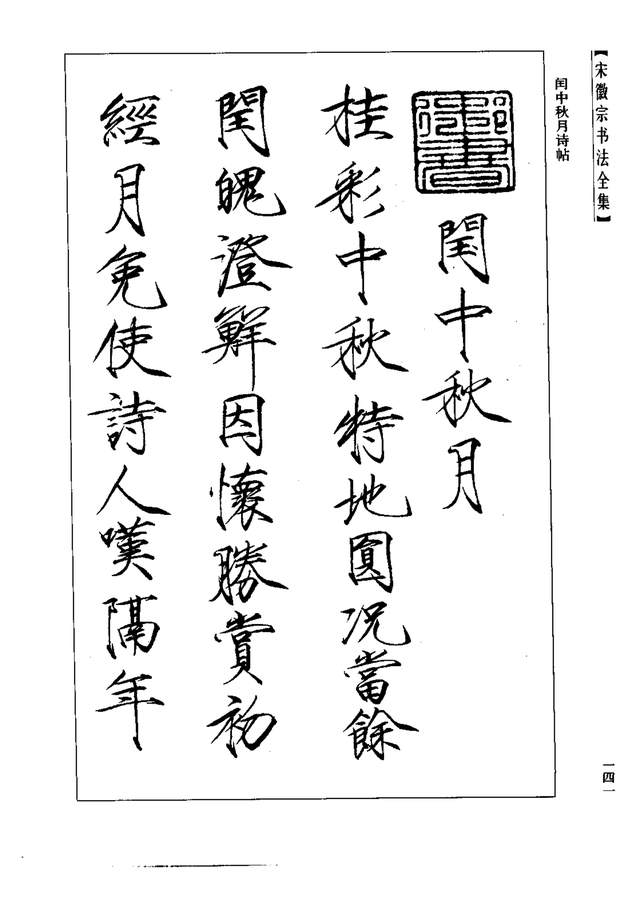 【宋徽宗书法全集】
闰中秋月诗帖
御書
閏中秋月
桂彩中秋特地圓況當餘
閏魄澄鮮因懷勝賞初
經月免使詩人嘆隔年
一四一